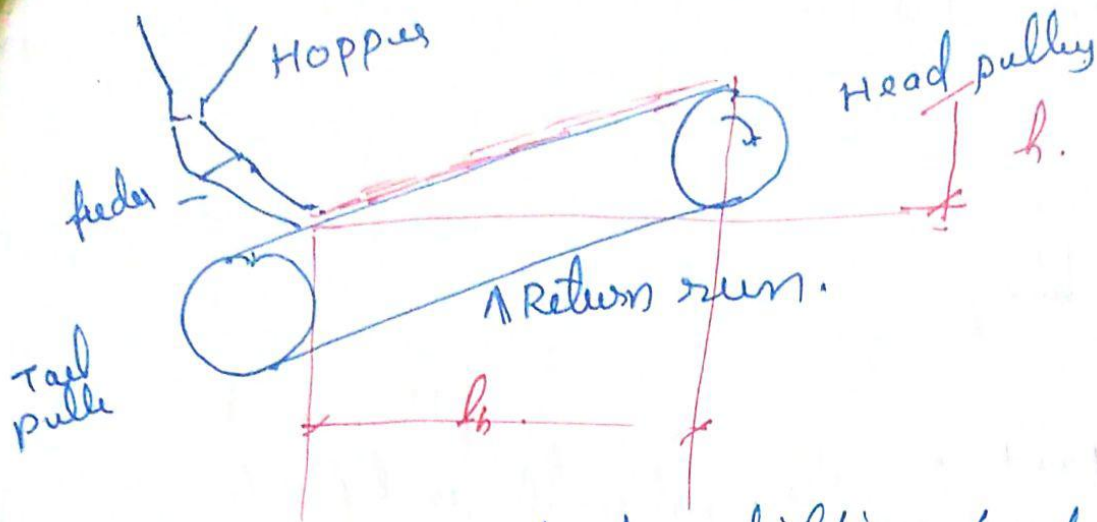 Hopper
Head pulley
h.
feeder
↑ Return run.
Tail
pulle
lh.